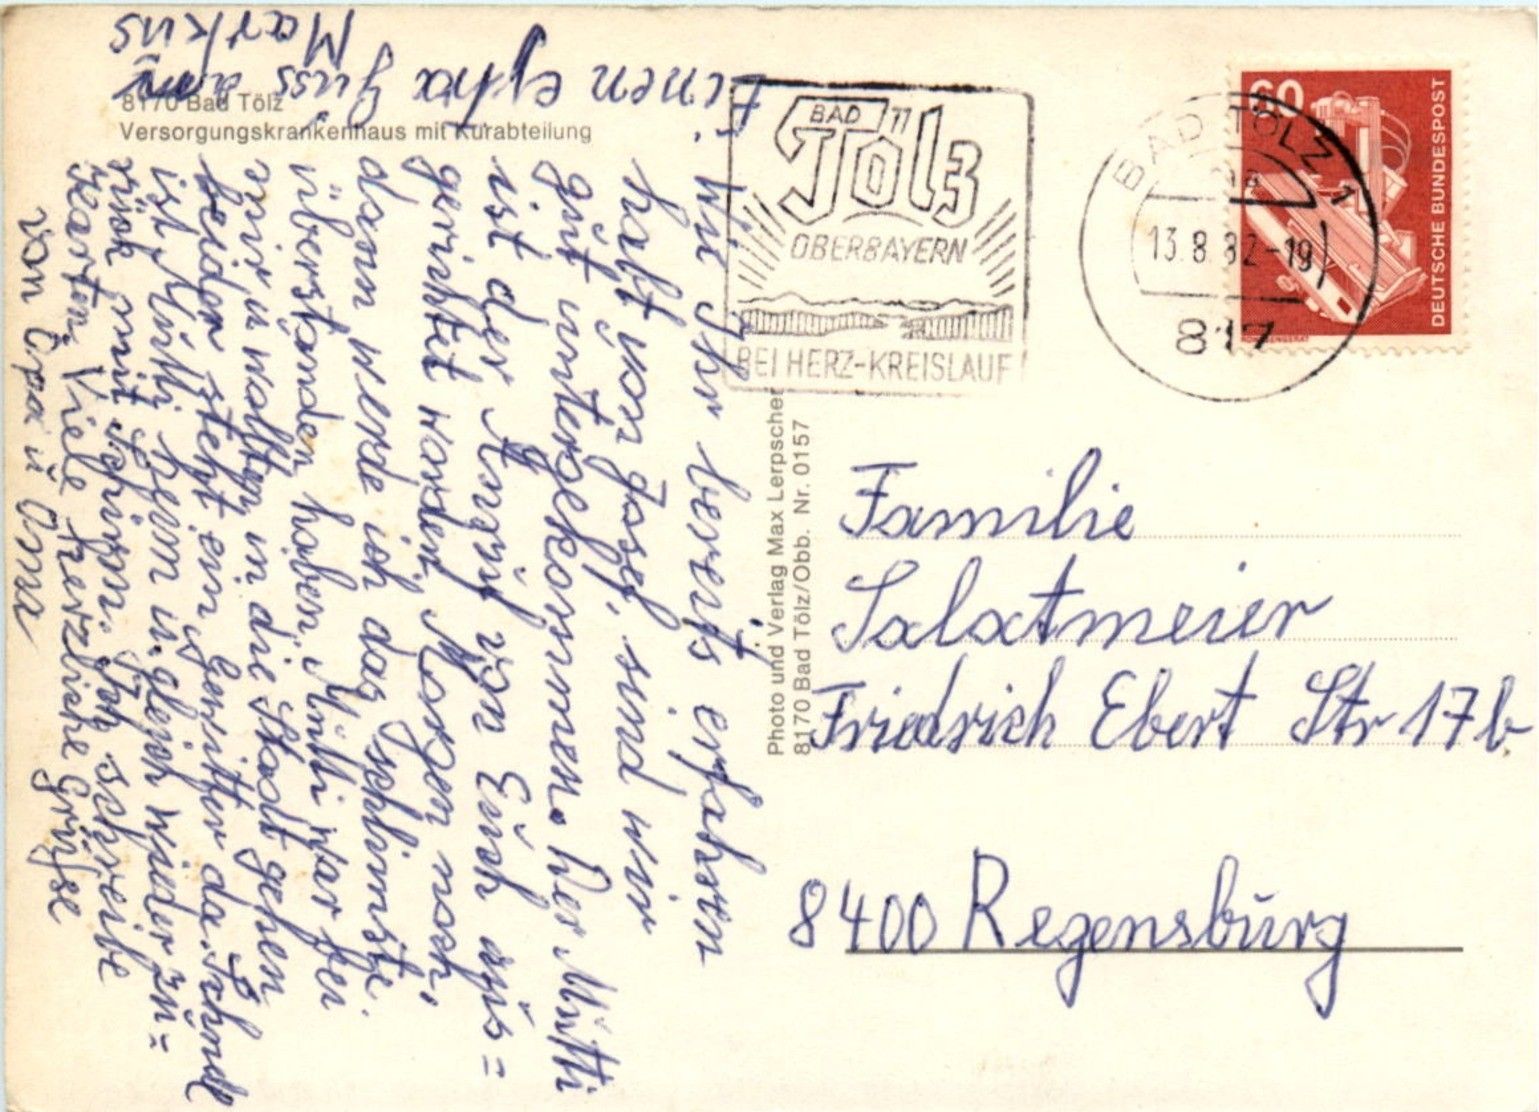 8170 Bad Tölz
Versorgungskrankenhaus mit Kurabteilung
BAD
Tölz
OBERBAYERN
BEI HERZ-KREISLAUF
BAD TÖLZ 1
13.8.82-19
817
60
DEUTSCHE BUNDESPOST
Photo und Verlag Max Lerpscher
8170 Bad Tölz/Obb. Nr. 0157
Familie
Salatmeier
Friedrich Ebert Str 17b
8400 Regensburg
Wie Ihr bereits erfahren
habt von Josef, sind wir
gut untergekommen. Der Mutti
ist der Anruf von Euch aus=
gerichtet worden, Morgen noch,
dann werde ich das Schlimste
überstanden haben. Mutti war bei
mir u wollten in die Stadt gehen
beider steht ein Gewitter da. Schnell
ist Mutti heim u. gleich wieder zu=
rück mit Schirm. Ich schreibe
Karten, Viele herzliche Grüße
von Opa u Oma
Einen extra Guss an
Markus